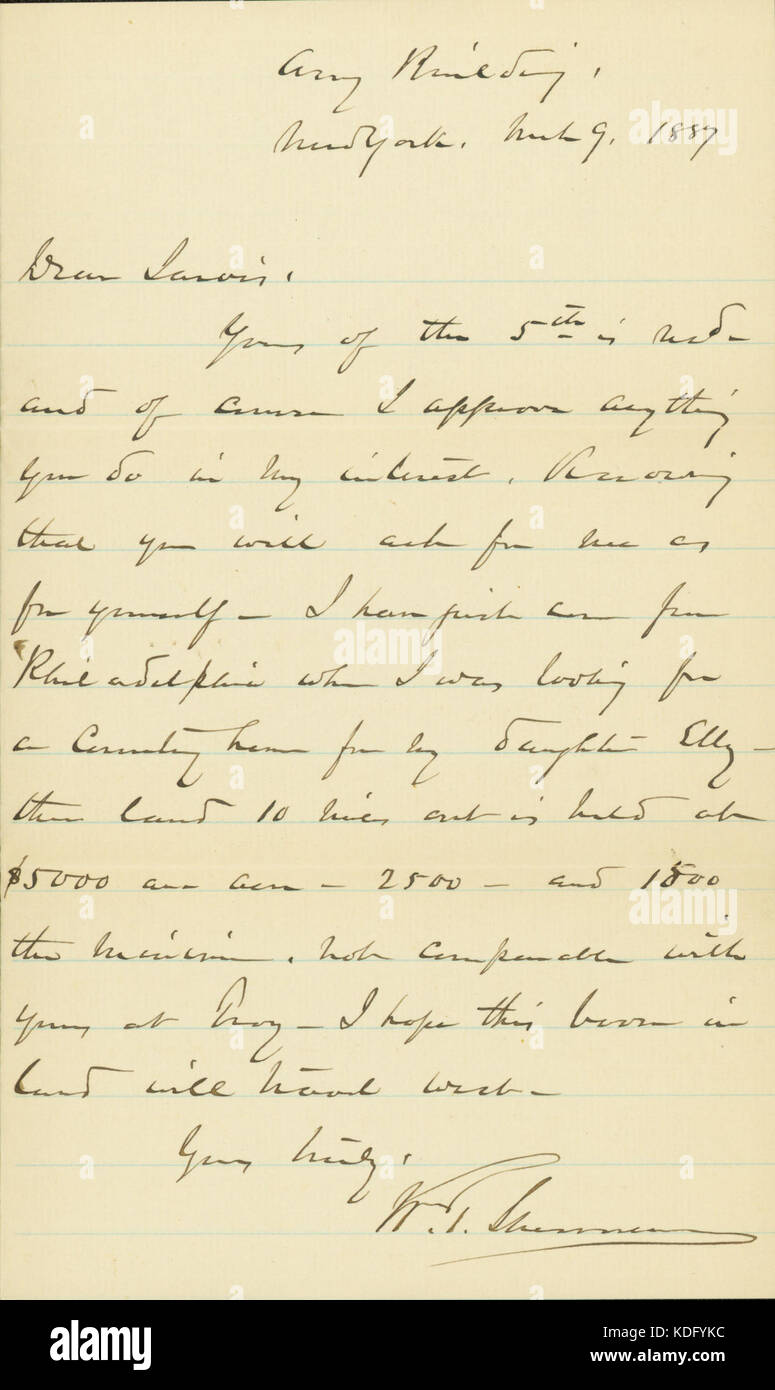 Army Building,
New York, Mch 9, 1887
Dear Jarvis,
Yours of the 5th is rec'd -
and of course I approve anything
you do in my interest, Knowing
that you will act for me as
for yourself - I have just come from
Philadelphia where I was looking for
a Country home for my daughter Elly -
then land 10 miles out is held at
$5000 an acre - 2500 - and 1500
the minimum, not comparable with
yours at Troy - I hope this boom in
land will travel west -
Yours truly,
W. T. Sherman
alamy
alamy
Image ID: KDFYKC
www.alamy.com